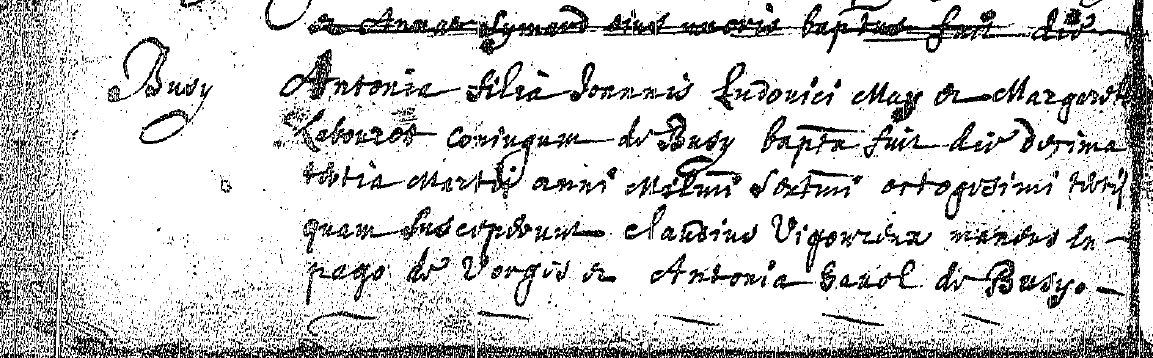 et Annae Symard eius uxoris baptus fuit die
Busy
Antonia filia Joannis Ludovici May et Margaretae
Lebouret coniugum de Busy bapta fuit die decima
tertia Martii anni Millmi Sextmi octogesimi tertij
quam susceperunt Claudius Vigoureux manens in
pago de Vorges et Antonia Gavol de Busy.